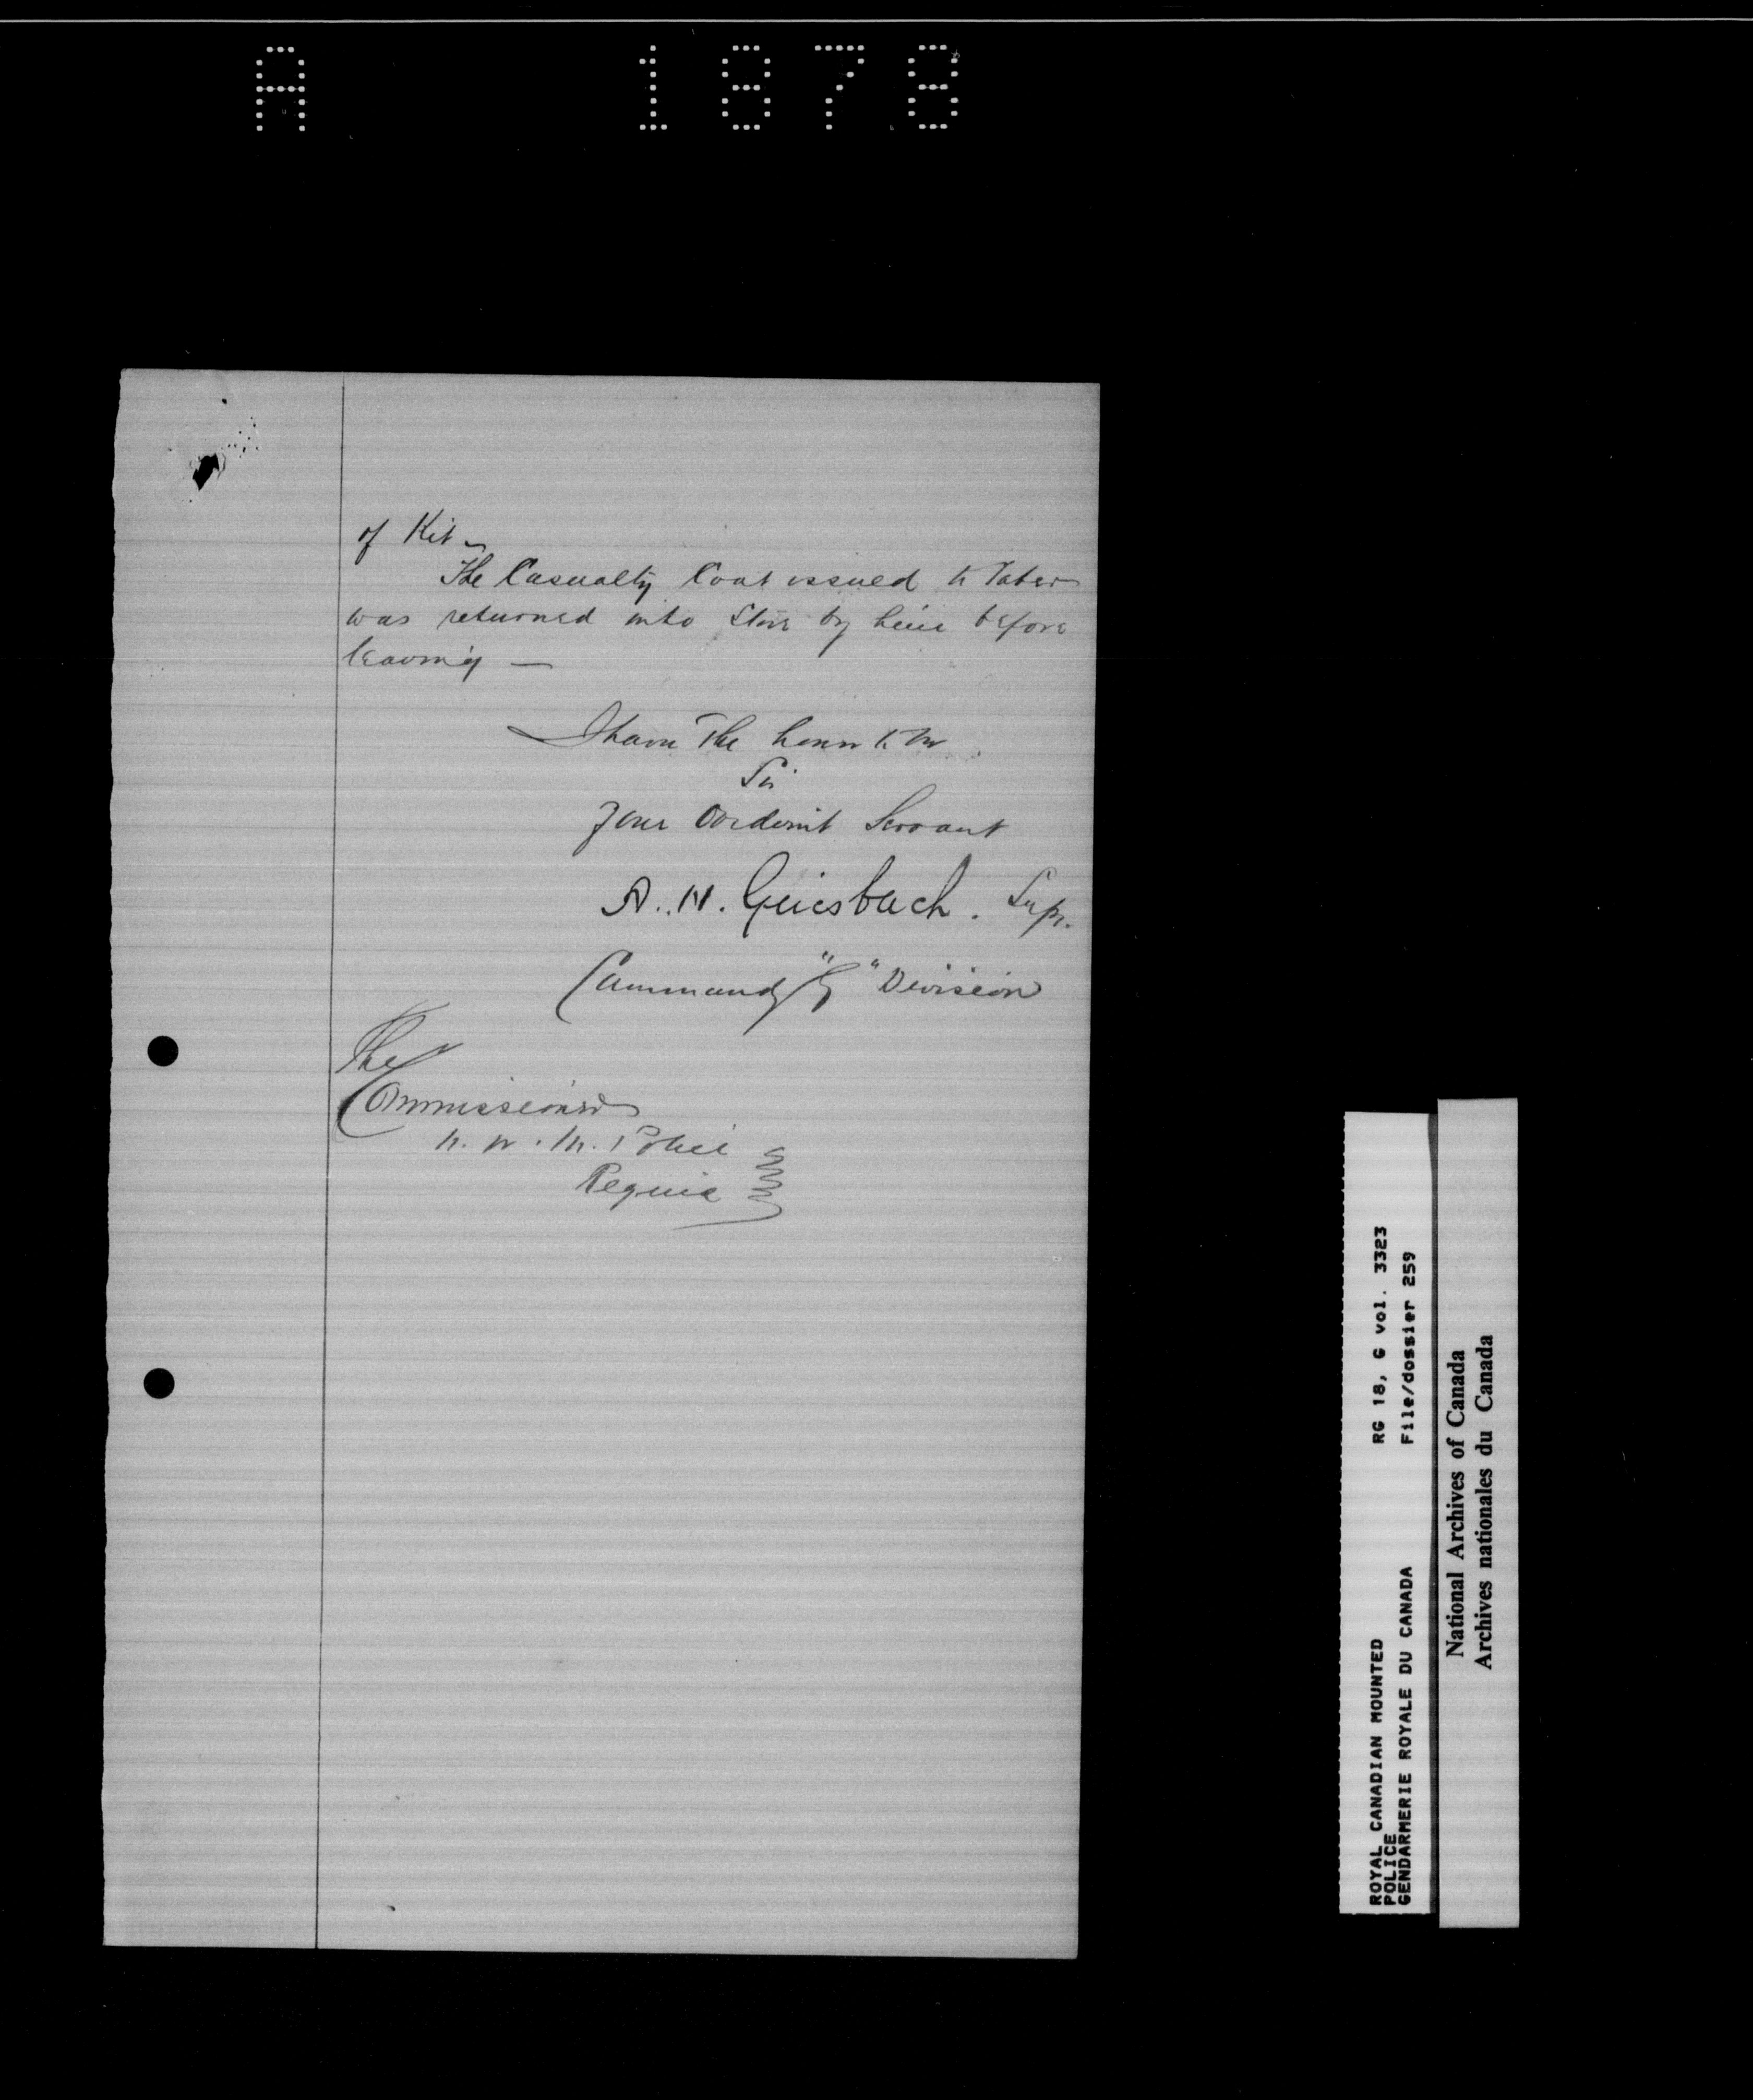 A 1878
of Kit
The Casualty Coat issued to Taber
was returned into Store by him before
leaving —
I have the honor to be
Sir
Your Obedient Servant
A. H. Griesbach. Supt.
Commandg "G" Division
The
Commissioner
N. W. M. Police
Regina
ROYAL CANADIAN MOUNTED
POLICE
GENDARMERIE ROYALE DU CANADA
RG 18, G vol. 3323
File/dossier 259
National Archives of Canada
Archives nationales du Canada